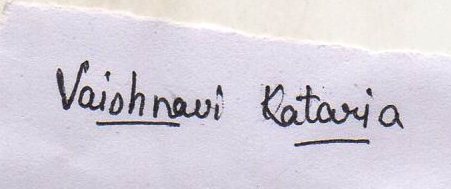 Vaishnavi Kataria